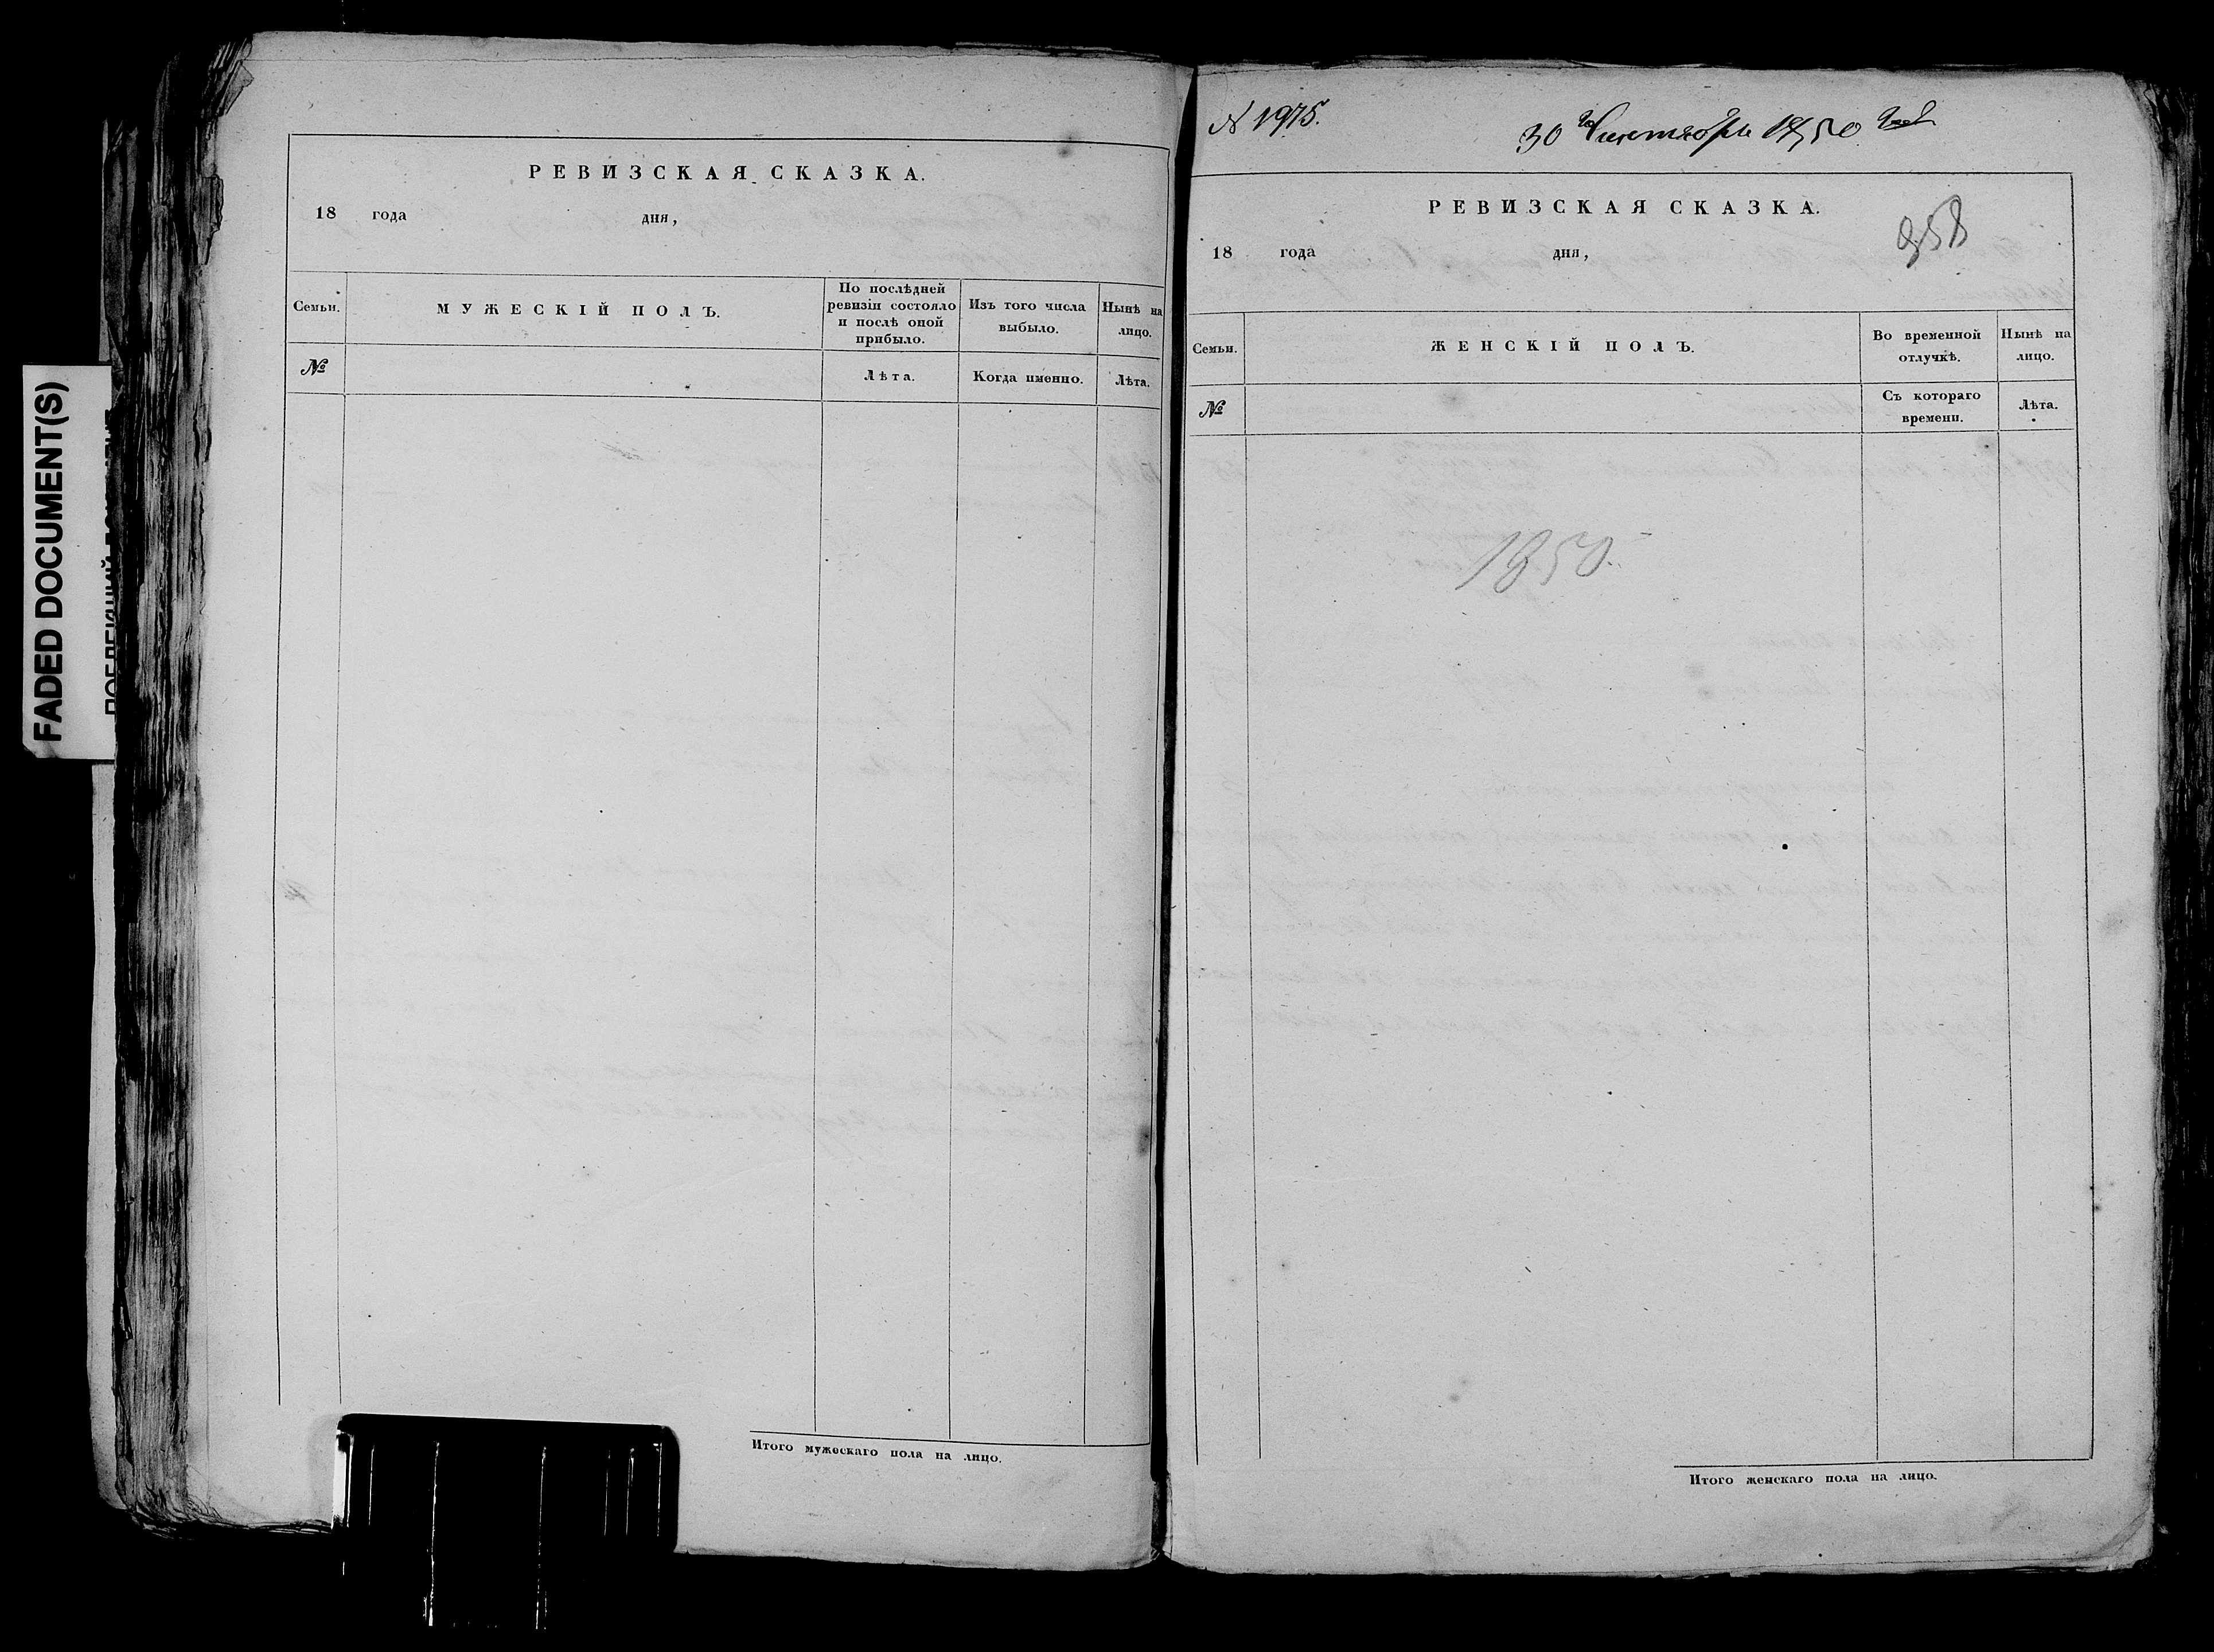 FADED DOCUMENT(S)
РЕВИЗСКАЯ СКАЗКА.
18 года дня,
Семьи.
МУЖЕСКІЙ ПОЛЪ.
По послѣдней
ревизіи состояло
и послѣ оной
прибыло.
Изъ того числа
выбыло.
Нынѣ на
лицо.
№
Лѣта.
Когда именно.
Лѣта.
Итого мужескаго пола на лицо.
N 1975.
30 го Сентября 1850 года
РЕВИЗСКАЯ СКАЗКА.
358
18 года дня,
Семьи.
ЖЕНСКІЙ ПОЛЪ.
Во временной
отлучкѣ.
Нынѣ на
лицо.
№
Съ котораго
времени.
Лѣта.
1850.
Итого женскаго пола на лицо.